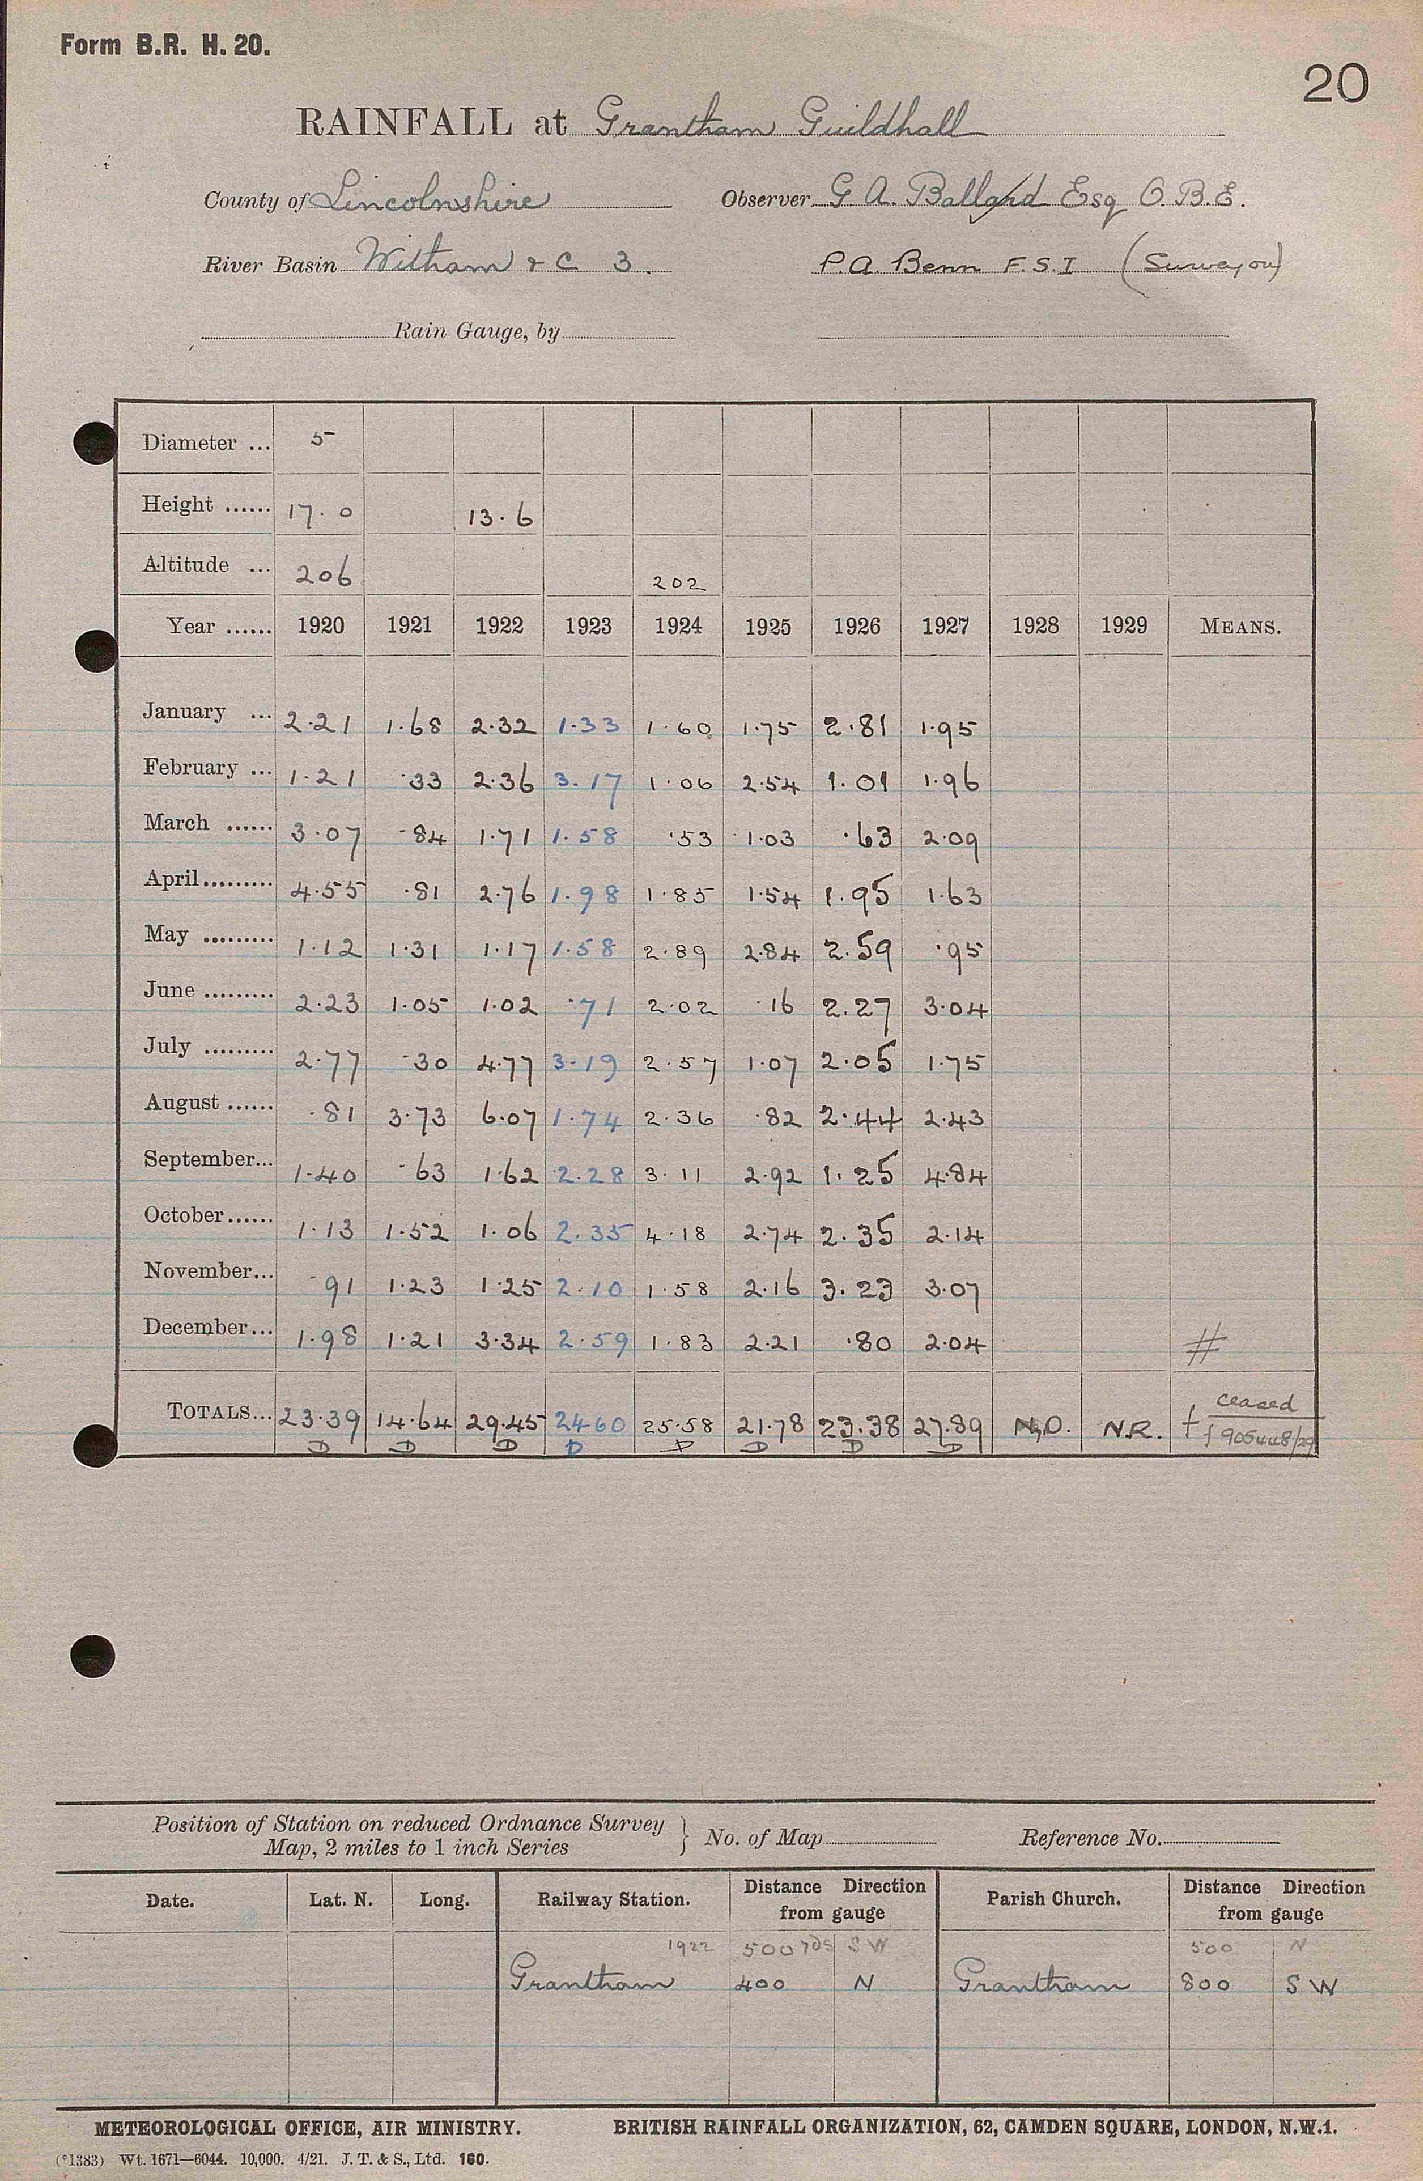 Form B.R. H. 20.
20
RAINFALL at Grantham Guildhall
County of Lincolnshire Observer G A. Ballard Esq O.B.E.
River Basin Witham & C 3. P.A. Benn F.S.I (Surveyor)
Rain Gauge, by
Diameter ... 5
Height ...... 17.0 13.6
Altitude ... 206 202
Year ...... 1920 1921 1922 1923 1924 1925 1926 1927 1928 1929 MEANS.
January ... 2.21 1.68 2.32 1.33 1.60 1.75 2.81 1.95
February ... 1.21 .33 2.36 3.17 1.06 2.54 1.01 1.96
March ...... 3.07 .84 1.71 1.58 .53 1.03 .63 2.09
April ......... 4.55 .81 2.76 1.98 1.85 1.54 1.95 1.63
May ......... 1.12 1.31 1.17 1.58 2.89 2.84 2.59 .95
June ......... 2.23 1.05 1.02 .71 2.02 .16 2.27 3.04
July ......... 2.77 .30 4.77 3.19 2.57 1.07 2.05 1.75
August ...... .81 3.73 6.07 1.74 2.36 .82 2.44 2.43
September... 1.40 .63 1.62 2.28 3.11 2.92 1.25 4.84
October ...... 1.13 1.52 1.06 2.35 4.18 2.74 2.35 2.14
November... .91 1.23 1.25 2.10 1.58 2.16 3.23 3.07
December... 1.98 1.21 3.34 2.59 1.83 2.21 .80 2.04 #
TOTALS... 23.39 14.64 29.45 24.60 25.58 21.78 23.38 27.89 N.D. N.R. † ceased
D D D D D D D D f 905448/29
Position of Station on reduced Ordnance Survey
Map, 2 miles to 1 inch Series } No. of Map Reference No.
Date. Lat. N. Long. Railway Station. Distance Direction from gauge Parish Church. Distance Direction from gauge
1922 500 yds SW 500 N
Grantham 400 N Grantham 800 S W
METEOROLOGICAL OFFICE, AIR MINISTRY. BRITISH RAINFALL ORGANIZATION, 62, CAMDEN SQUARE, LONDON, N.W.1.
(*1383) Wt. 1671—6044. 10,000. 4/21. J. T. & S., Ltd. 160.